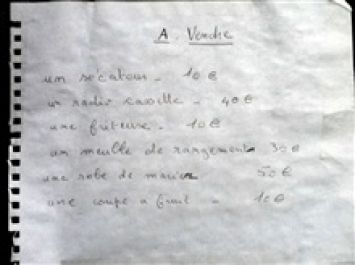 A Vendre
un sécateur - 10 €
un radio cassette - 40 €
une friteuse - 10 €
un meuble de rangement 30 €
une robe de mariée 50 €
une coupe a fruit - 10 €